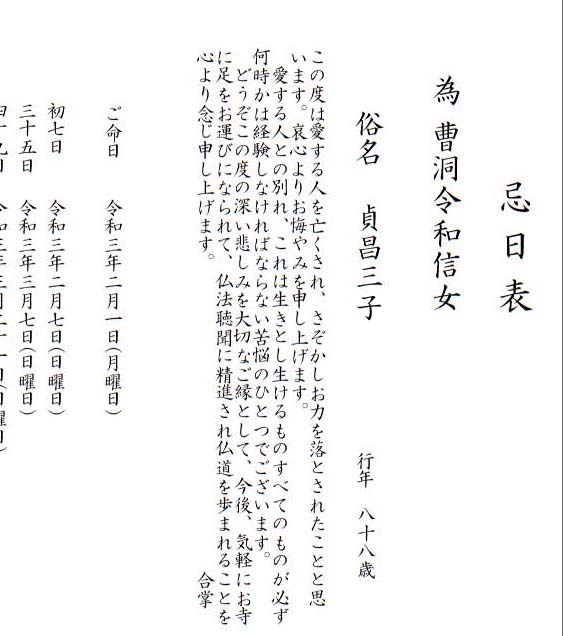 忌日表
為 曹洞令和信女
俗名 貞昌三子 行年 八十八歳
この度は愛する人を亡くされ、さぞかしお力を落とされたことと思
います。哀心よりお悔やみを申し上げます。
愛する人との別れ、これは生きとし生けるものすべてのものが必ず
何時かは経験しなければならない苦悩のひとつでございます。
どうぞこの度の深い悲しみを大切なご縁として、今後、気軽にお寺
に足をお運びになられて、仏法聴聞に精進され仏道を歩まれることを
心より念じ申し上げます。 合掌
ご命日 令和三年二月一日(月曜日)
初七日 令和三年二月七日(日曜日)
三十五日 令和三年三月七日(日曜日)